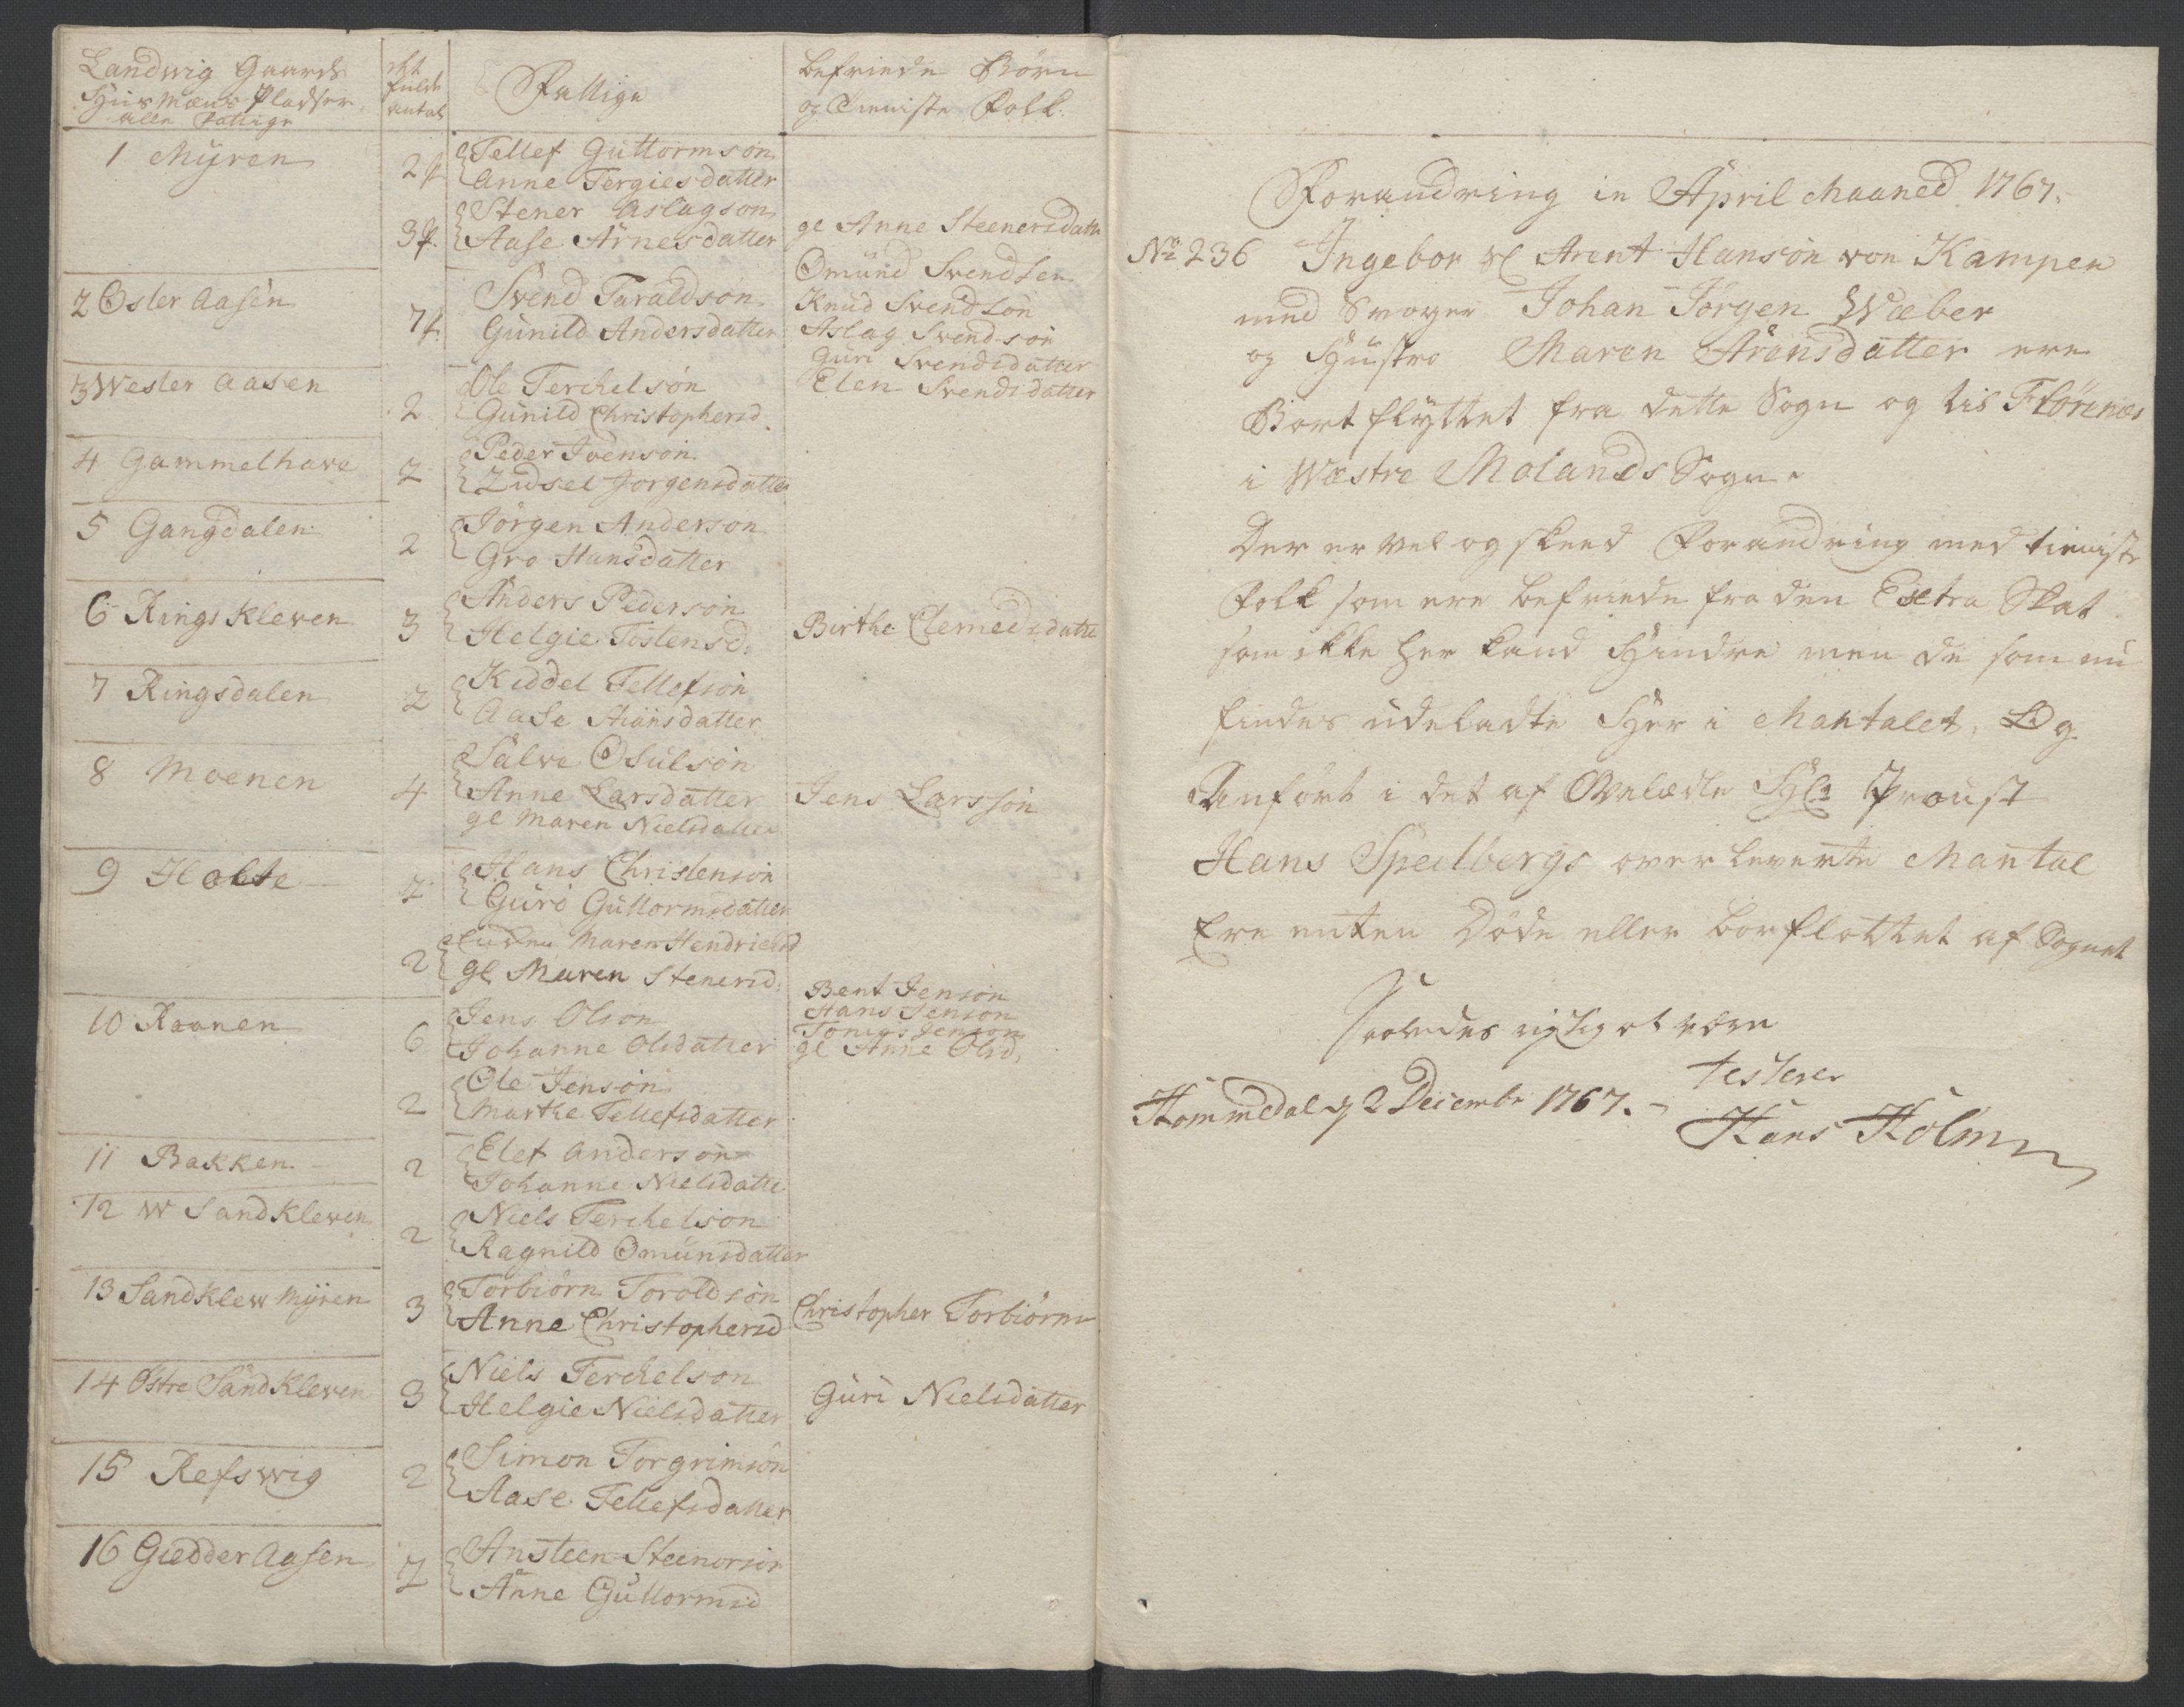 Landwig Gaards
Huusmæns Pladser
alle Fattige
det
fulde
antal
Fattige
befriede Börn
og Tieniste Folk.
1 Myren
2 p
Tellef Guttormsön
Anne Tergiesdatter
3 p.
Stener Aslagson
Aase Arnesdatter
ge Anne Steenersdatte
2 Öster Aasen
7 p.
Svend Taraldson
Gunild Andersdatter
Omund Svendsen
Knud Svendsön
Aslag Svendsön
Guri Svendsdatter
Elen Svendsdatter
3 Wester Aasen
2
Ole Terchelsön
Gunild Christophersd.
4 Gammelhave
2
Peder Ivenson
Zidsel Jorgensdatter
5 Gangdalen
2
Jörgen Anderson
Gro Hansdatter
6 Rings Kleven
3
Anders Pederson
Helgie Tostensd:
Birthe Clemedsdatte
7 Ringsdalen
2
Kiddel Tellefsön
Aase Hansdatter
8 Moenen
4
Salve Osulsön
Anne Larsdatter
ge Maren Nielsdatter
Jens Larssön
9 Holte
2
Hans Christensön
Guro Guttormsdatter
2
Enken Maren Hendrichsd
ge Maren Stenersd:
10 Raanen
6
Jens Olson
Johanne Olsdatter
Bent Jensön
Hans Jenson
Tönnes Jenson
ge Anne Olsd,
2
Ole Jensön
Marthe Tellefsdatter
11 Bakken
2
Elef Andersön
Johanne Nielsdatte
12 W SandKleven
2
Niels Terchelson
Ragnild Omunsdatter
13 SandKlew Myren
3
Torbiörn Toroldsön
Anne Christophersd
Christopher Torbiörns
14 Östre SandKleven
3
Niels Terchelson
Helgie Nielsdatter
Guri Nielsdatter
15 Refswig
2
Simon Torgrimsön
Aase Tellefsdatter
16 Giedder Aasen
2
Ansteen Steenersön
Anne Guttormsd
Forandring in April Maaned 1767.
No 236 Ingebor Sl Arent Hansön von Kampen
med Svoger Johan Jörgen Wæber
og Hustro Maren Arensdatter ere
Bort flyttet fra dette Sogn og til Flörenes
i Wæstre Molands Sogn
Der er vel og skeed Forandring med tieniste
Folk som ere befriede fra den Extra Skat
som ikke her kand Hindre men de som nu
findes udeladte Her i Mantalet, Og
Anfört i det af Velædle Hr Proust
Hans Speilbergs over leverte Mantal
Ere enten Döde eller borflöttet af Sognet
Saaledes rigtig at være
testerer
Hommedal d 2 Decembr 1767.
Hans Holm